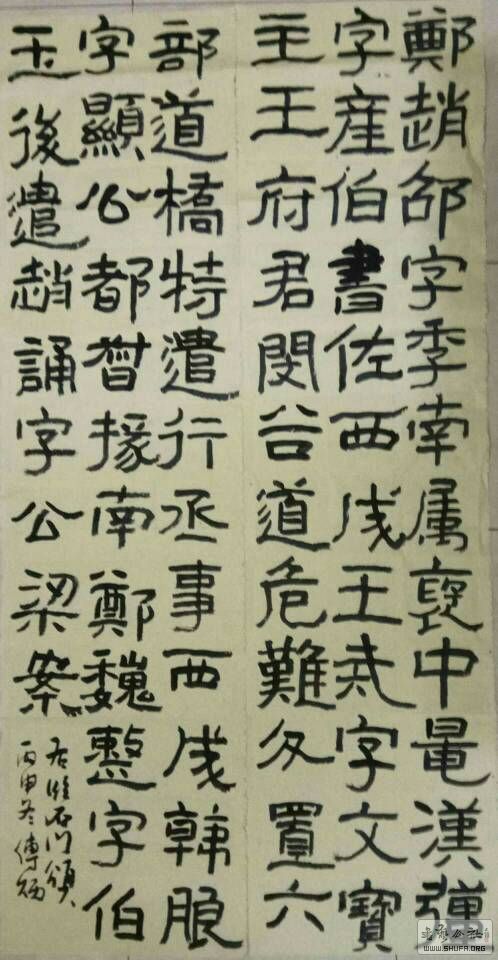 鄭趙邵字季南属褒中鼂漢彊
字産伯書佐西成王戒字文寶
主王府君閔谷道危難分置六
部道橋特遣行丞事西成韓朖
字顯公都督掾南鄭魏整字伯
玉後遣趙誦字公梁案
右臨石门頌
丙申冬傅
书艺公社
WWW.SHUFA.ORG